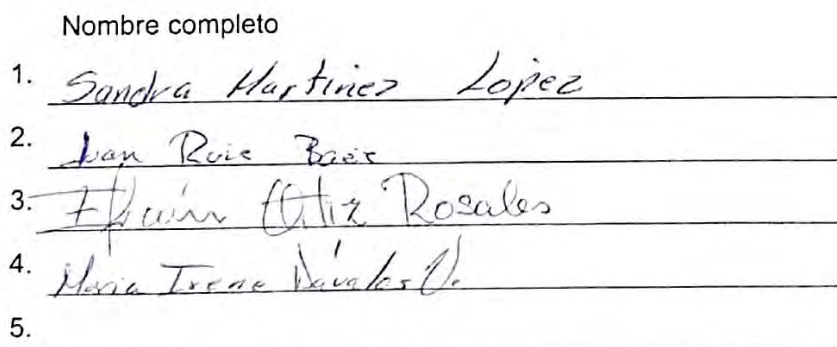 Nombre completo
1. Sandra Martinez Lopez
2. Juan Ruiz Baez
3. Efraín Ortiz Rosales
4. Maria Irene Dávalos V.
5.